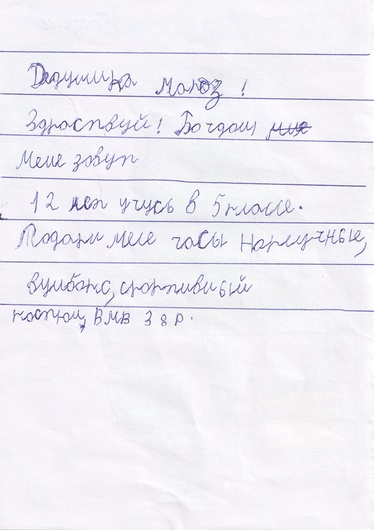 Дедушка Мороз!
Здраствуй! Богдан
Меня зовут
12 лет учусь в 5 классе.
Подари мене часы наручные,
спортивный
костюм, ВМВ 38 р.